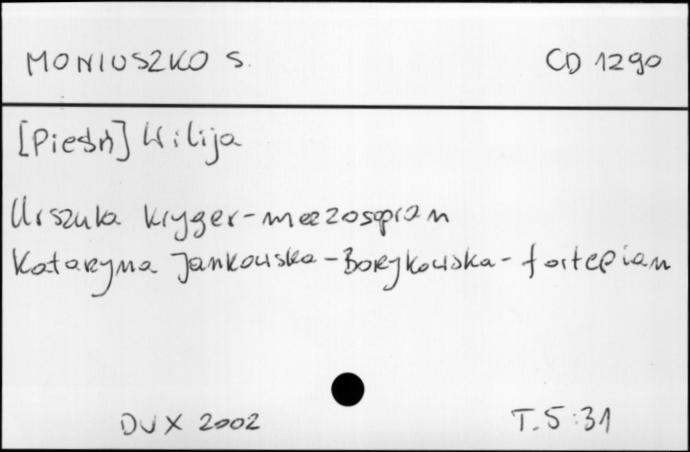 MONIUSZKO S. CD 1290
[Pieśń] Wilija
Urszula Kryger - mezzosopran
Katarzyna Jankowska - Borzykowska - fortepian
DUX 2002 T. 5:31